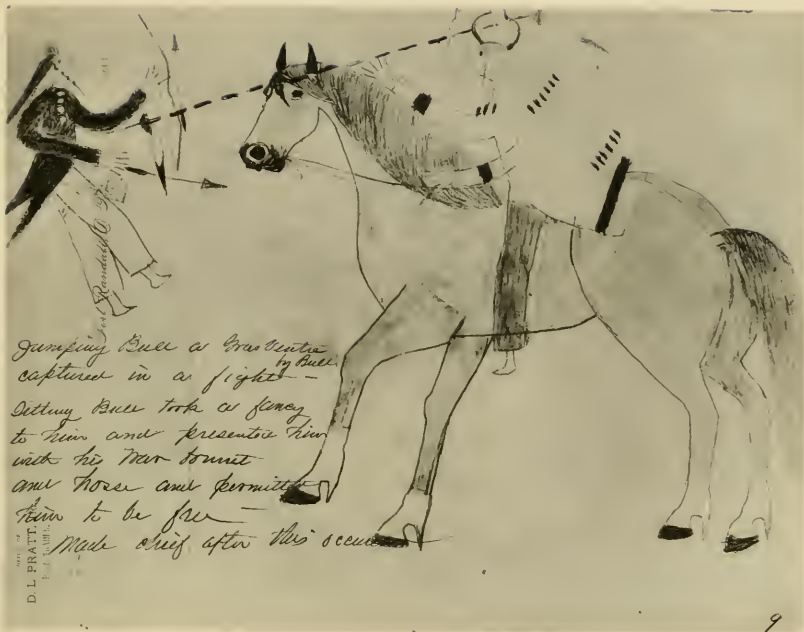 Jumping Bull a GrosVentre
captured in a fight by Bull —
Sitting Bull took a fancy
to him and presented him
with his War bonnet
and horse and permitted
him to be free —
Made chief after this
D. L. PRATT,
Fort Randall
9